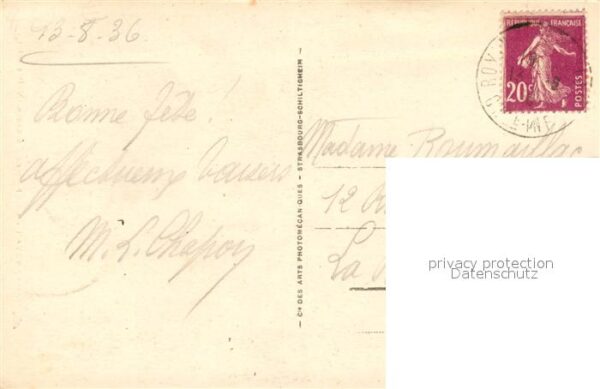 13-8-36
Bonne fête !
affectueux baisers
M. L. Chapoy
Cie DES ARTS PHOTOMÉCANIQUES - STRASBOURG-SCHILTIGHEIM
RÉPUBLIQUE FRANÇAISE
20c
POSTES
Madame
12
La
privacy protection
Datenschutz